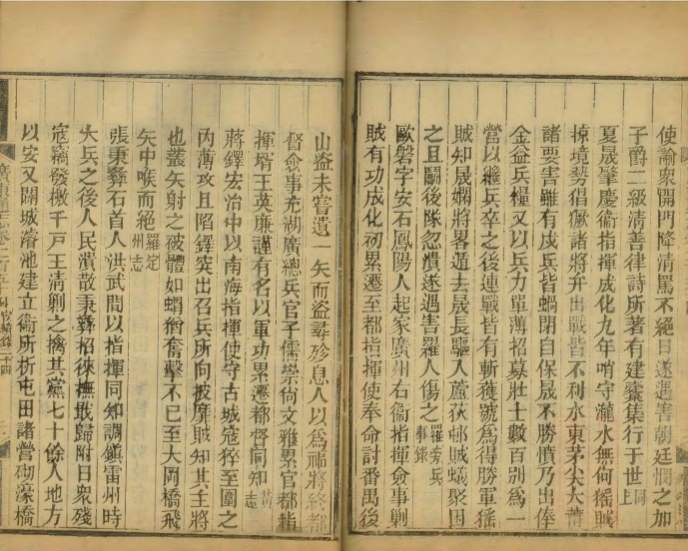 使諭衆開門降清罵不絕口遂遇害朝廷憫之加
子爵二級清善律詩所著有建橐集行于世同上
夏晟肇慶衞指揮成化九年哨守瀧水無何猺賊
掠境勢猖獗諸將弁出戰皆不利水東茅尖大蓽
諸要害雖有戍兵皆蝸閉自保晟不勝憤乃出俸
金益兵糧又以兵力單薄招募壯士數百別為一
營以繼兵卒之後連戰皆有斬獲號為得勝軍猺
賊知晟嫻將畧遁去晟長驅入蘆荻邨賊蟻聚因
之且鬬後隊忽潰遂遇害羅人傷之羅旁兵事錄
歐磐字安石鳳陽人起家廣州右衞指揮僉事剿
賊有功成化初累遷至都指揮使奉命討番禺後
山盜未嘗遺一矢而盜尋殄息人以為福將終都
督僉事充湖廣總兵官子儒崇尚文雅累官都指
揮壻王英廉謹有名以軍功累遷都督同知黃志
蔣鐸宏治中以南海指揮使守古城寇猝至圍之
丙薄攻且陷鐸突出召兵所向披靡賊知其主將
也叢矢射之被體如蝟猶奮擊不已至大岡橋飛
矢中喉而絕羅定州志
張秉彝石首人洪武間以指揮同知調鎮雷州時
大兵之後人民潰散秉彝招徠撫戢歸附日衆殘
寇竊發檄千戶王清剿之擒其黨七十餘人地方
以安又開城濬池建立衞所折屯田諸營砌濠橋
廣東通志卷二百 官績錄 十四